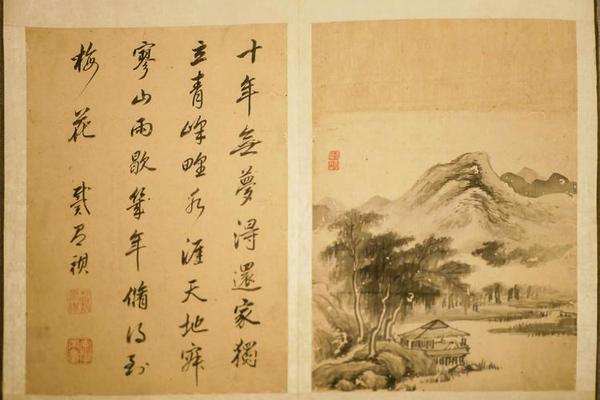 十年無夢淂還家獨
立青峰野水涯天地寂
寥山雨歇幾年脩得到
梅花